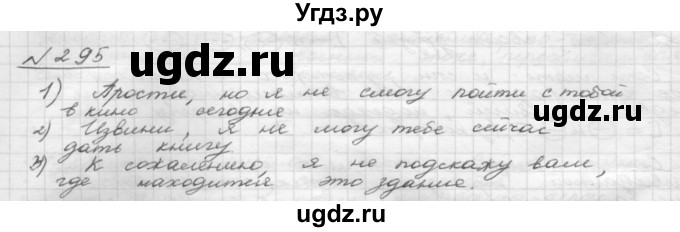 Угдз.ру
№295
ugdz.ru
ugdz.ru
1) Прости, но я не смогу пойти с тобой
в кино сегодне
2) Извини, я не могу тебе сейчас
дать книгу
ugdz.ru
ugdz.ru
3) К сожалению, я не подскажу вам,
где находится это здание.
ugdz.ru
ugdz.ru